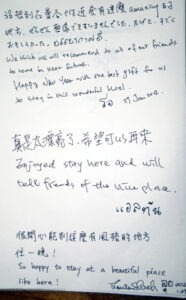 沒想到在曼谷附近會有這麼 amazing 的
地方。ぜんぜん想像できませんでした。
おもしろかった。
We think we will recommend to all of our friends
to come in near future.
Happy New Year with the best gift for us
to stay in this wonderful hotel.
01 Jan
真是太漂亮了,希望可以再來
Enjoyed stay here and will
tell friends of the nice place.
很開心能到這麼有風格的地方
住一晚!
So happy to stay at a beautiful place
like here!